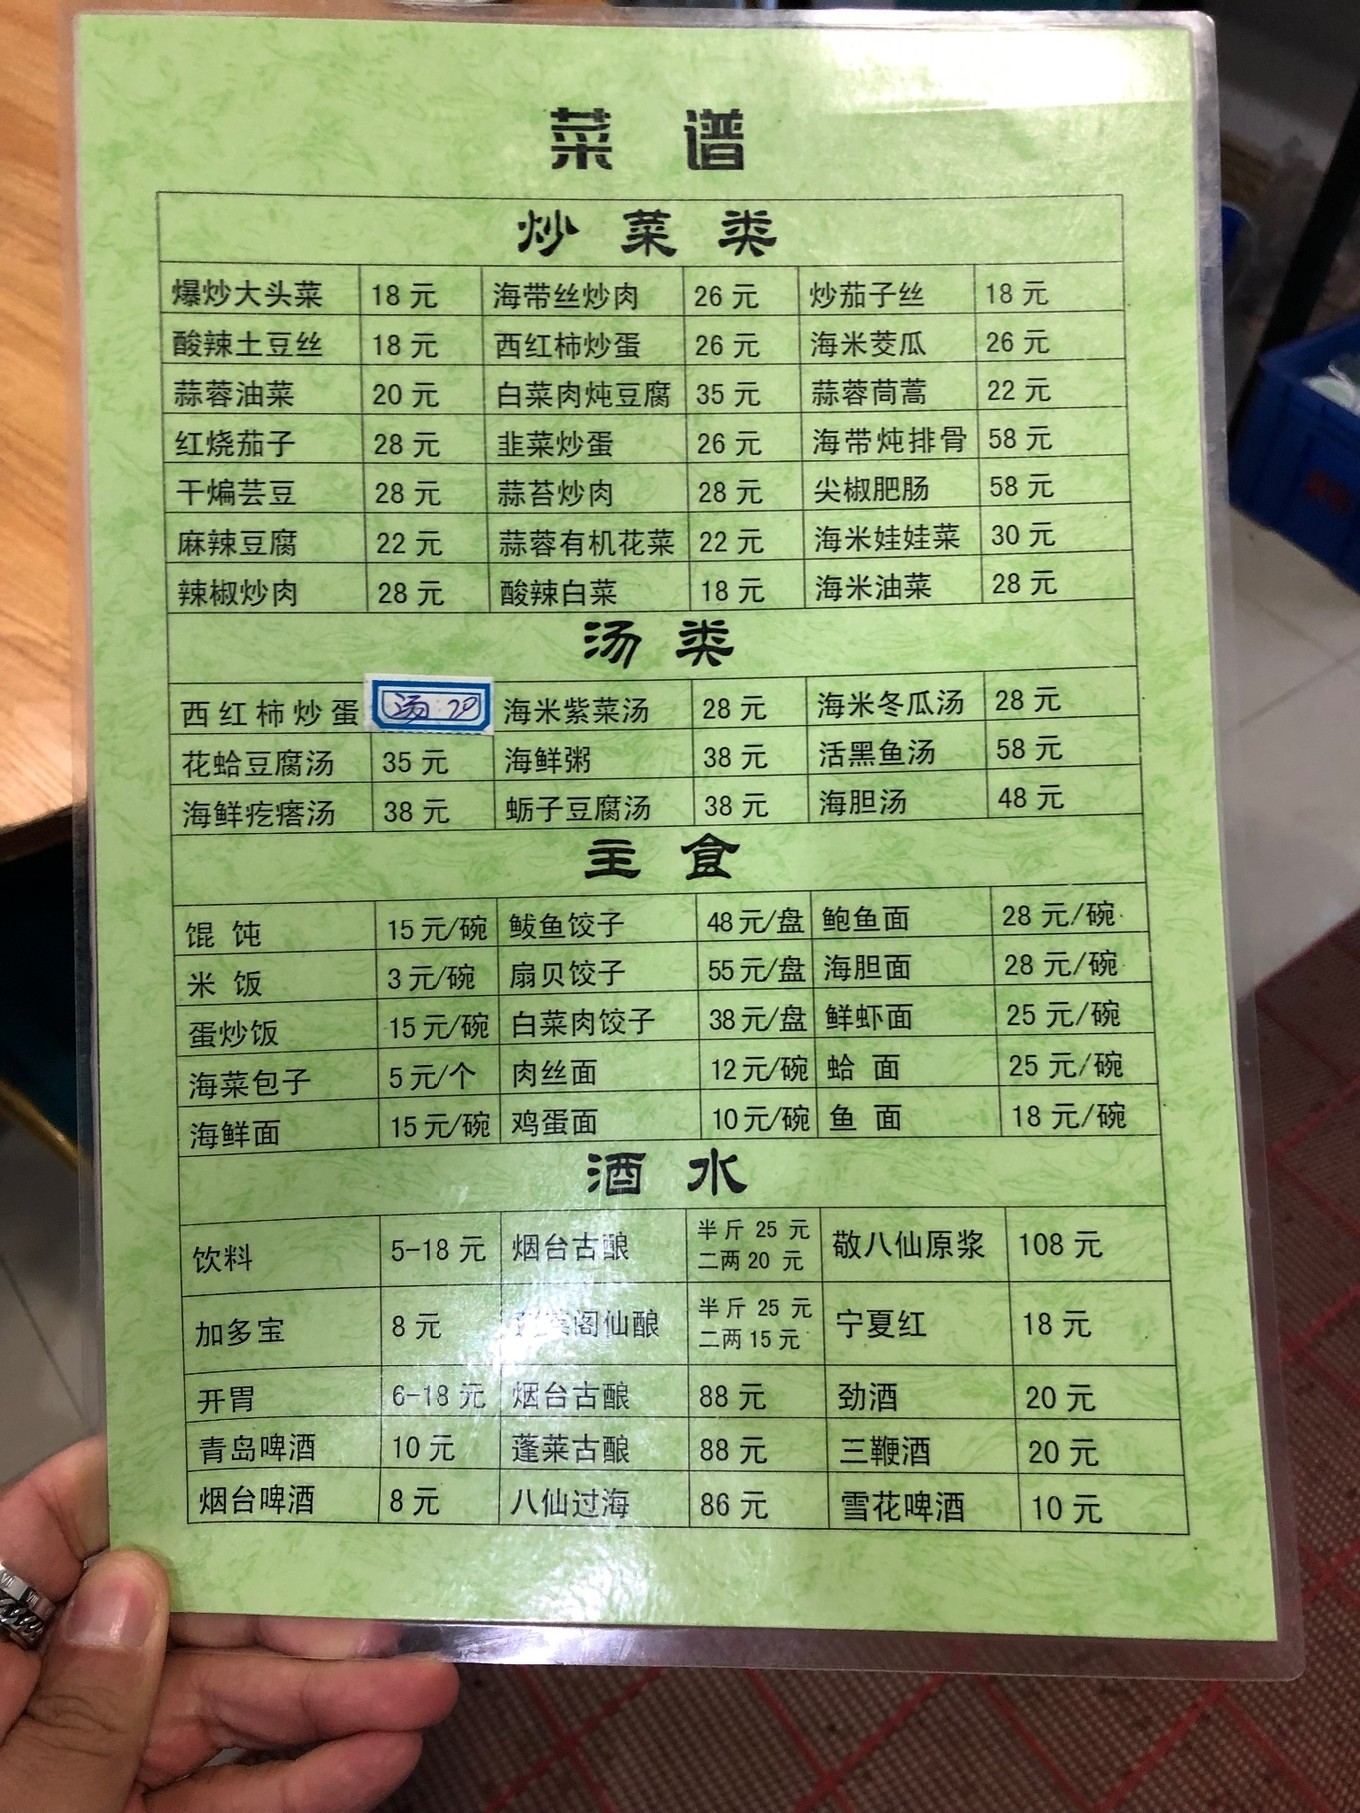 菜 谱
炒 菜 类
爆炒大头菜 18 元 海带丝炒肉 26 元 炒茄子丝 18 元
酸辣土豆丝 18 元 西红柿炒蛋 26 元 海米茭瓜 26 元
蒜蓉油菜 20 元 白菜肉炖豆腐 35 元 蒜蓉茼蒿 22 元
红烧茄子 28 元 韭菜炒蛋 26 元 海带炖排骨 58 元
干煸芸豆 28 元 蒜苔炒肉 28 元 尖椒肥肠 58 元
麻辣豆腐 22 元 蒜蓉有机花菜 22 元 海米娃娃菜 30 元
辣椒炒肉 28 元 酸辣白菜 18 元 海米油菜 28 元
汤 类
西红柿炒蛋 汤 海米紫菜汤 28 元 海米冬瓜汤 28 元
花蛤豆腐汤 35 元 海鲜粥 38 元 活黑鱼汤 58 元
海鲜疙瘩汤 38 元 蛎子豆腐汤 38 元 海胆汤 48 元
主 食
馄 饨 15 元/碗 鲅鱼饺子 48 元/盘 鲍鱼面 28 元/碗
米 饭 3 元/碗 扇贝饺子 55 元/盘 海胆面 28 元/碗
蛋炒饭 15 元/碗 白菜肉饺子 38 元/盘 鲜虾面 25 元/碗
海菜包子 5 元/个 肉丝面 12 元/碗 蛤 面 25 元/碗
海鲜面 15 元/碗 鸡蛋面 10 元/碗 鱼 面 18 元/碗
酒 水
饮料 5-18 元 烟台古酿 半斤 25 元 二两 20 元 敬八仙原浆 108 元
加多宝 8 元 阁仙酿 半斤 25 元 二两 15 元 宁夏红 18 元
开胃 6-18 元 烟台古酿 88 元 劲酒 20 元
青岛啤酒 10 元 蓬莱古酿 88 元 三鞭酒 20 元
烟台啤酒 8 元 八仙过海 86 元 雪花啤酒 10 元